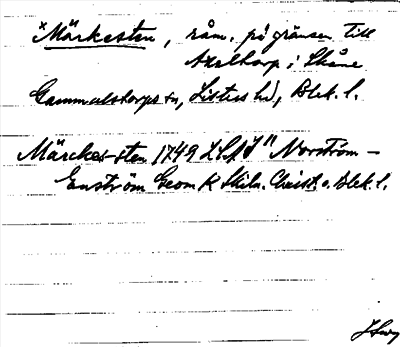 *Märkesten, råm. på gränsen till
Axeltorp i Skåne
Gammalstorps sn, Listers hd, Blek. l.
Märckes-sten 1749 Norström –
Enström Geom K Skiln. Christ. o. Blek. l.